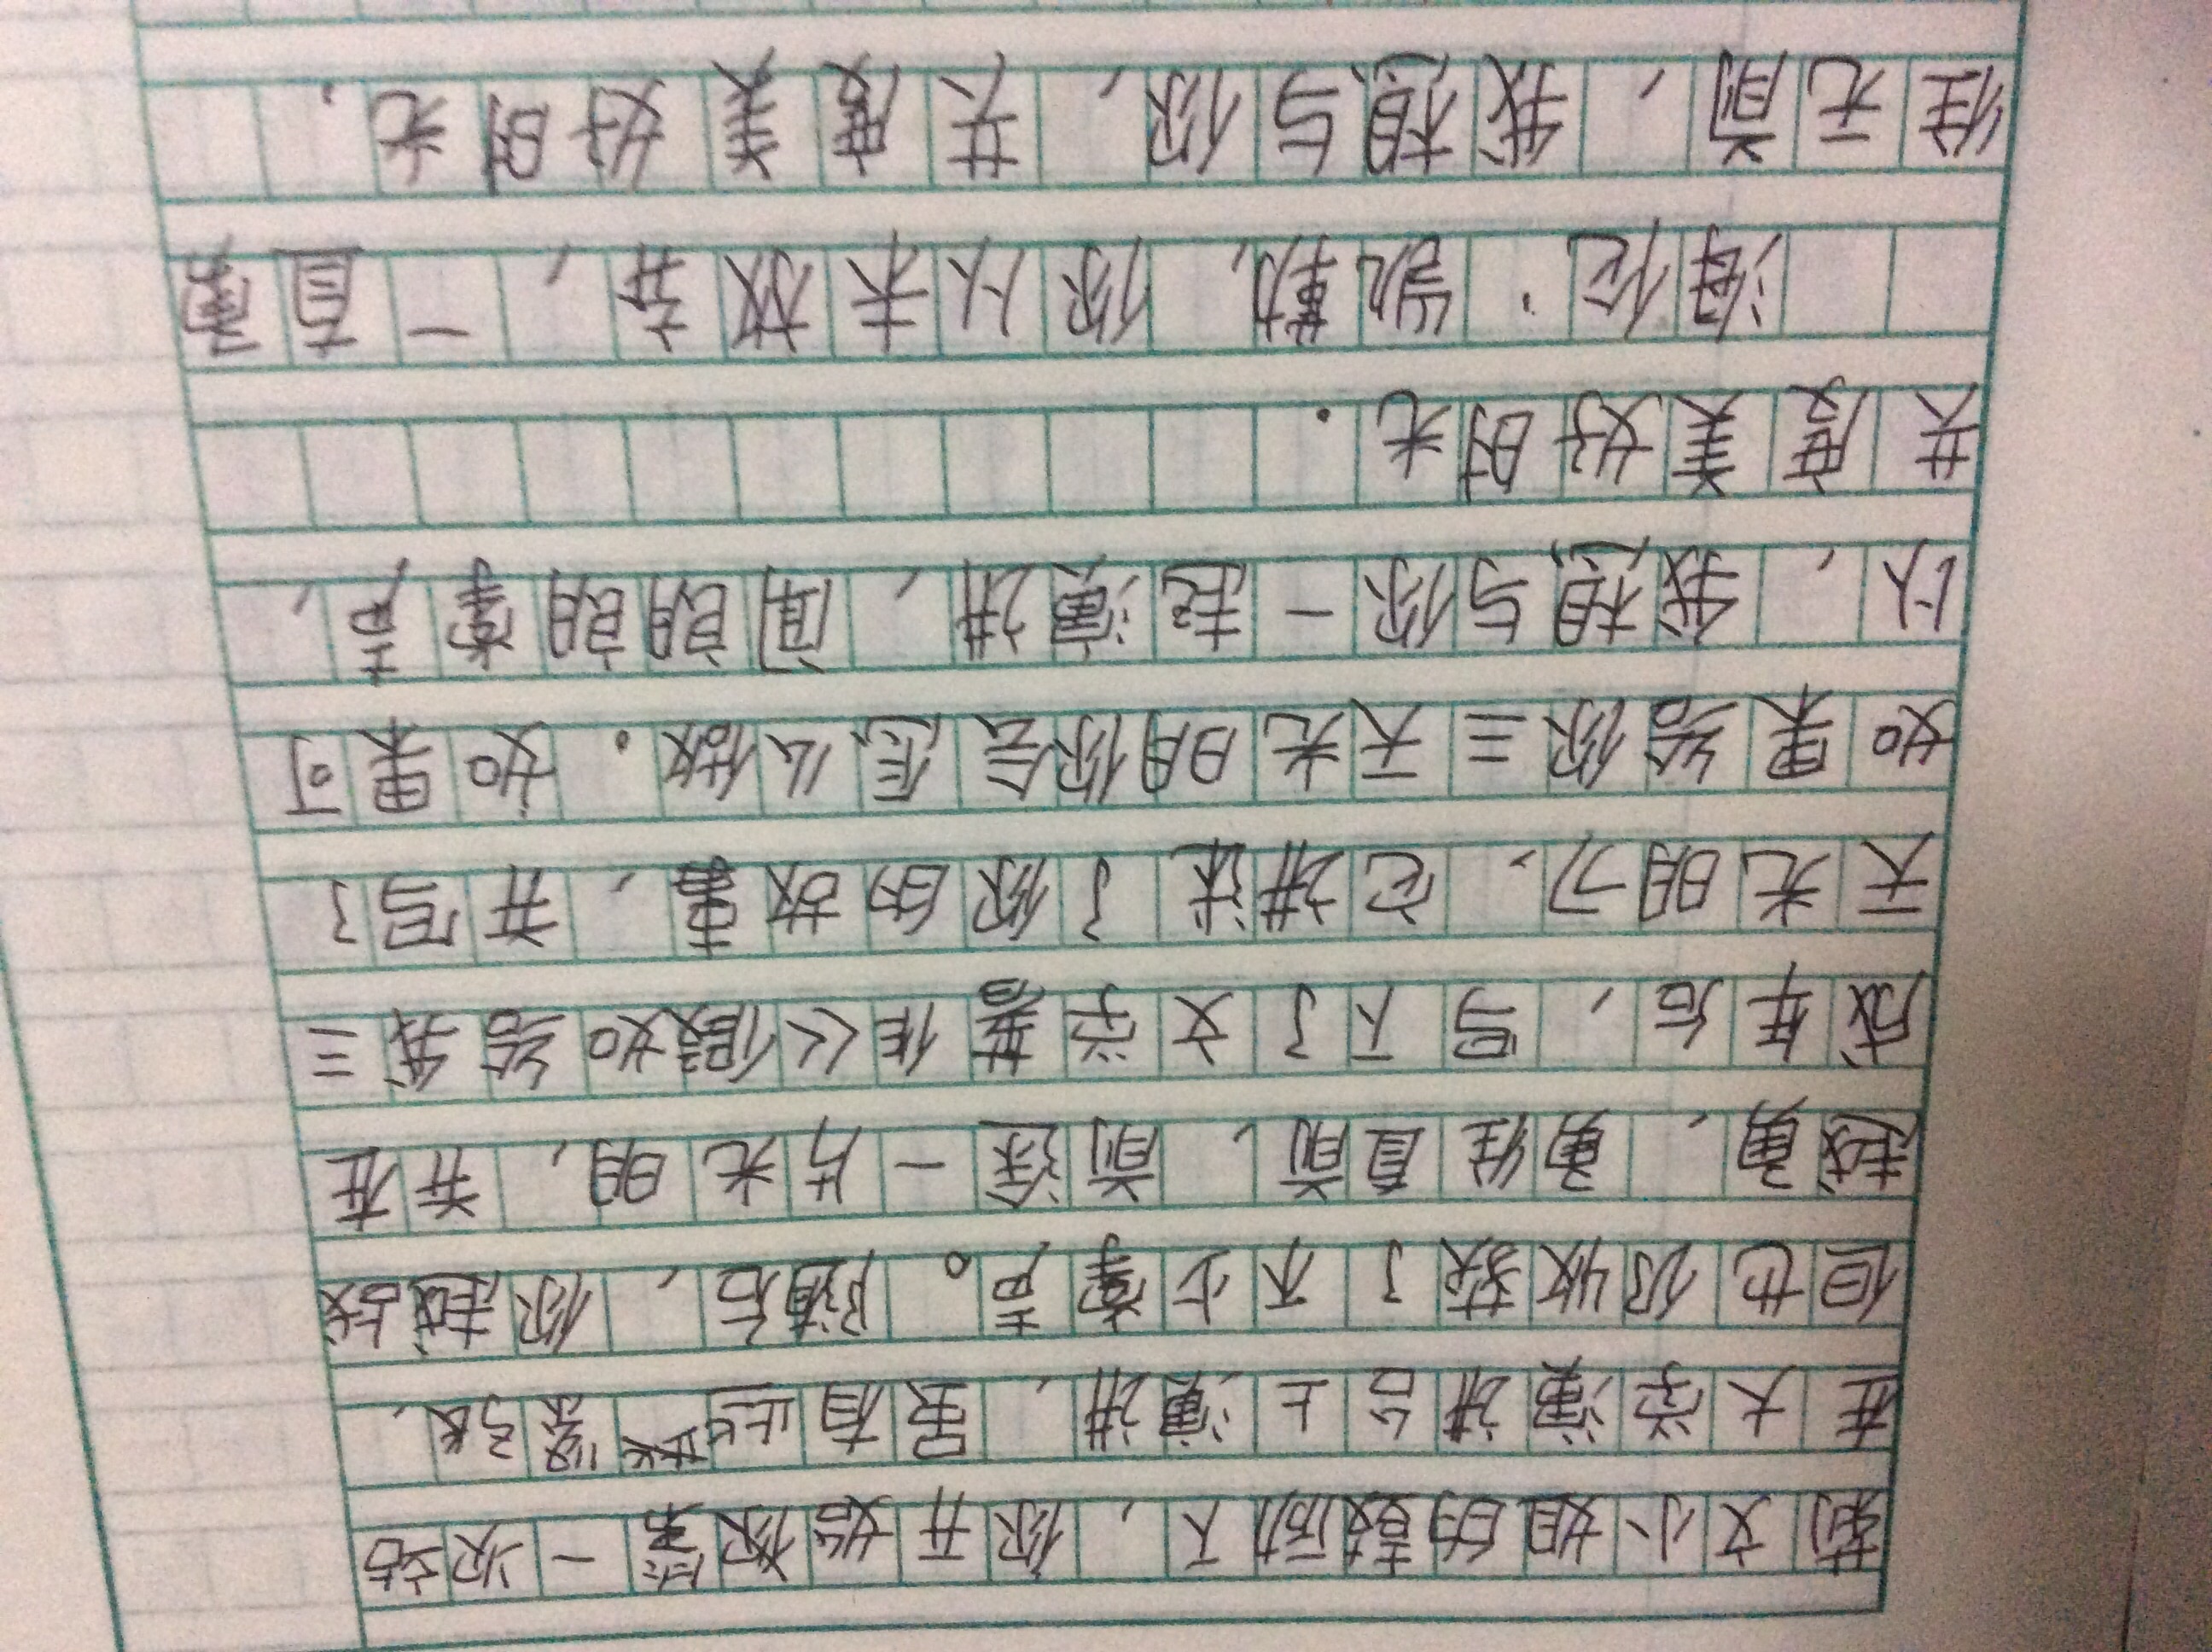 莉文小姐的鼓励下，你开始你第一次站
在大学演讲台上演讲，虽有些紧张，
但也你收获了不少掌声。随后，你越战
越勇，勇往直前，前途一片光明，并在
成年后，写下了文学著作《假如给我三
天光明》，它讲述了你的故事，并写了
如果给你三天光明你会怎么做。如果可
以，我想与你一起演讲，闻朗朗掌声，
共度美好时光。
海伦·凯勒，你从未放弃，一直勇
往无前，我想与你，共度美好时光。